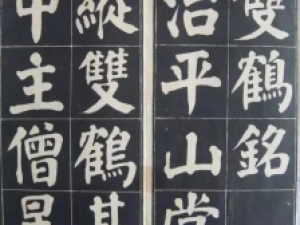 雙鶴銘
治平山堂
縱雙鶴其
中主僧